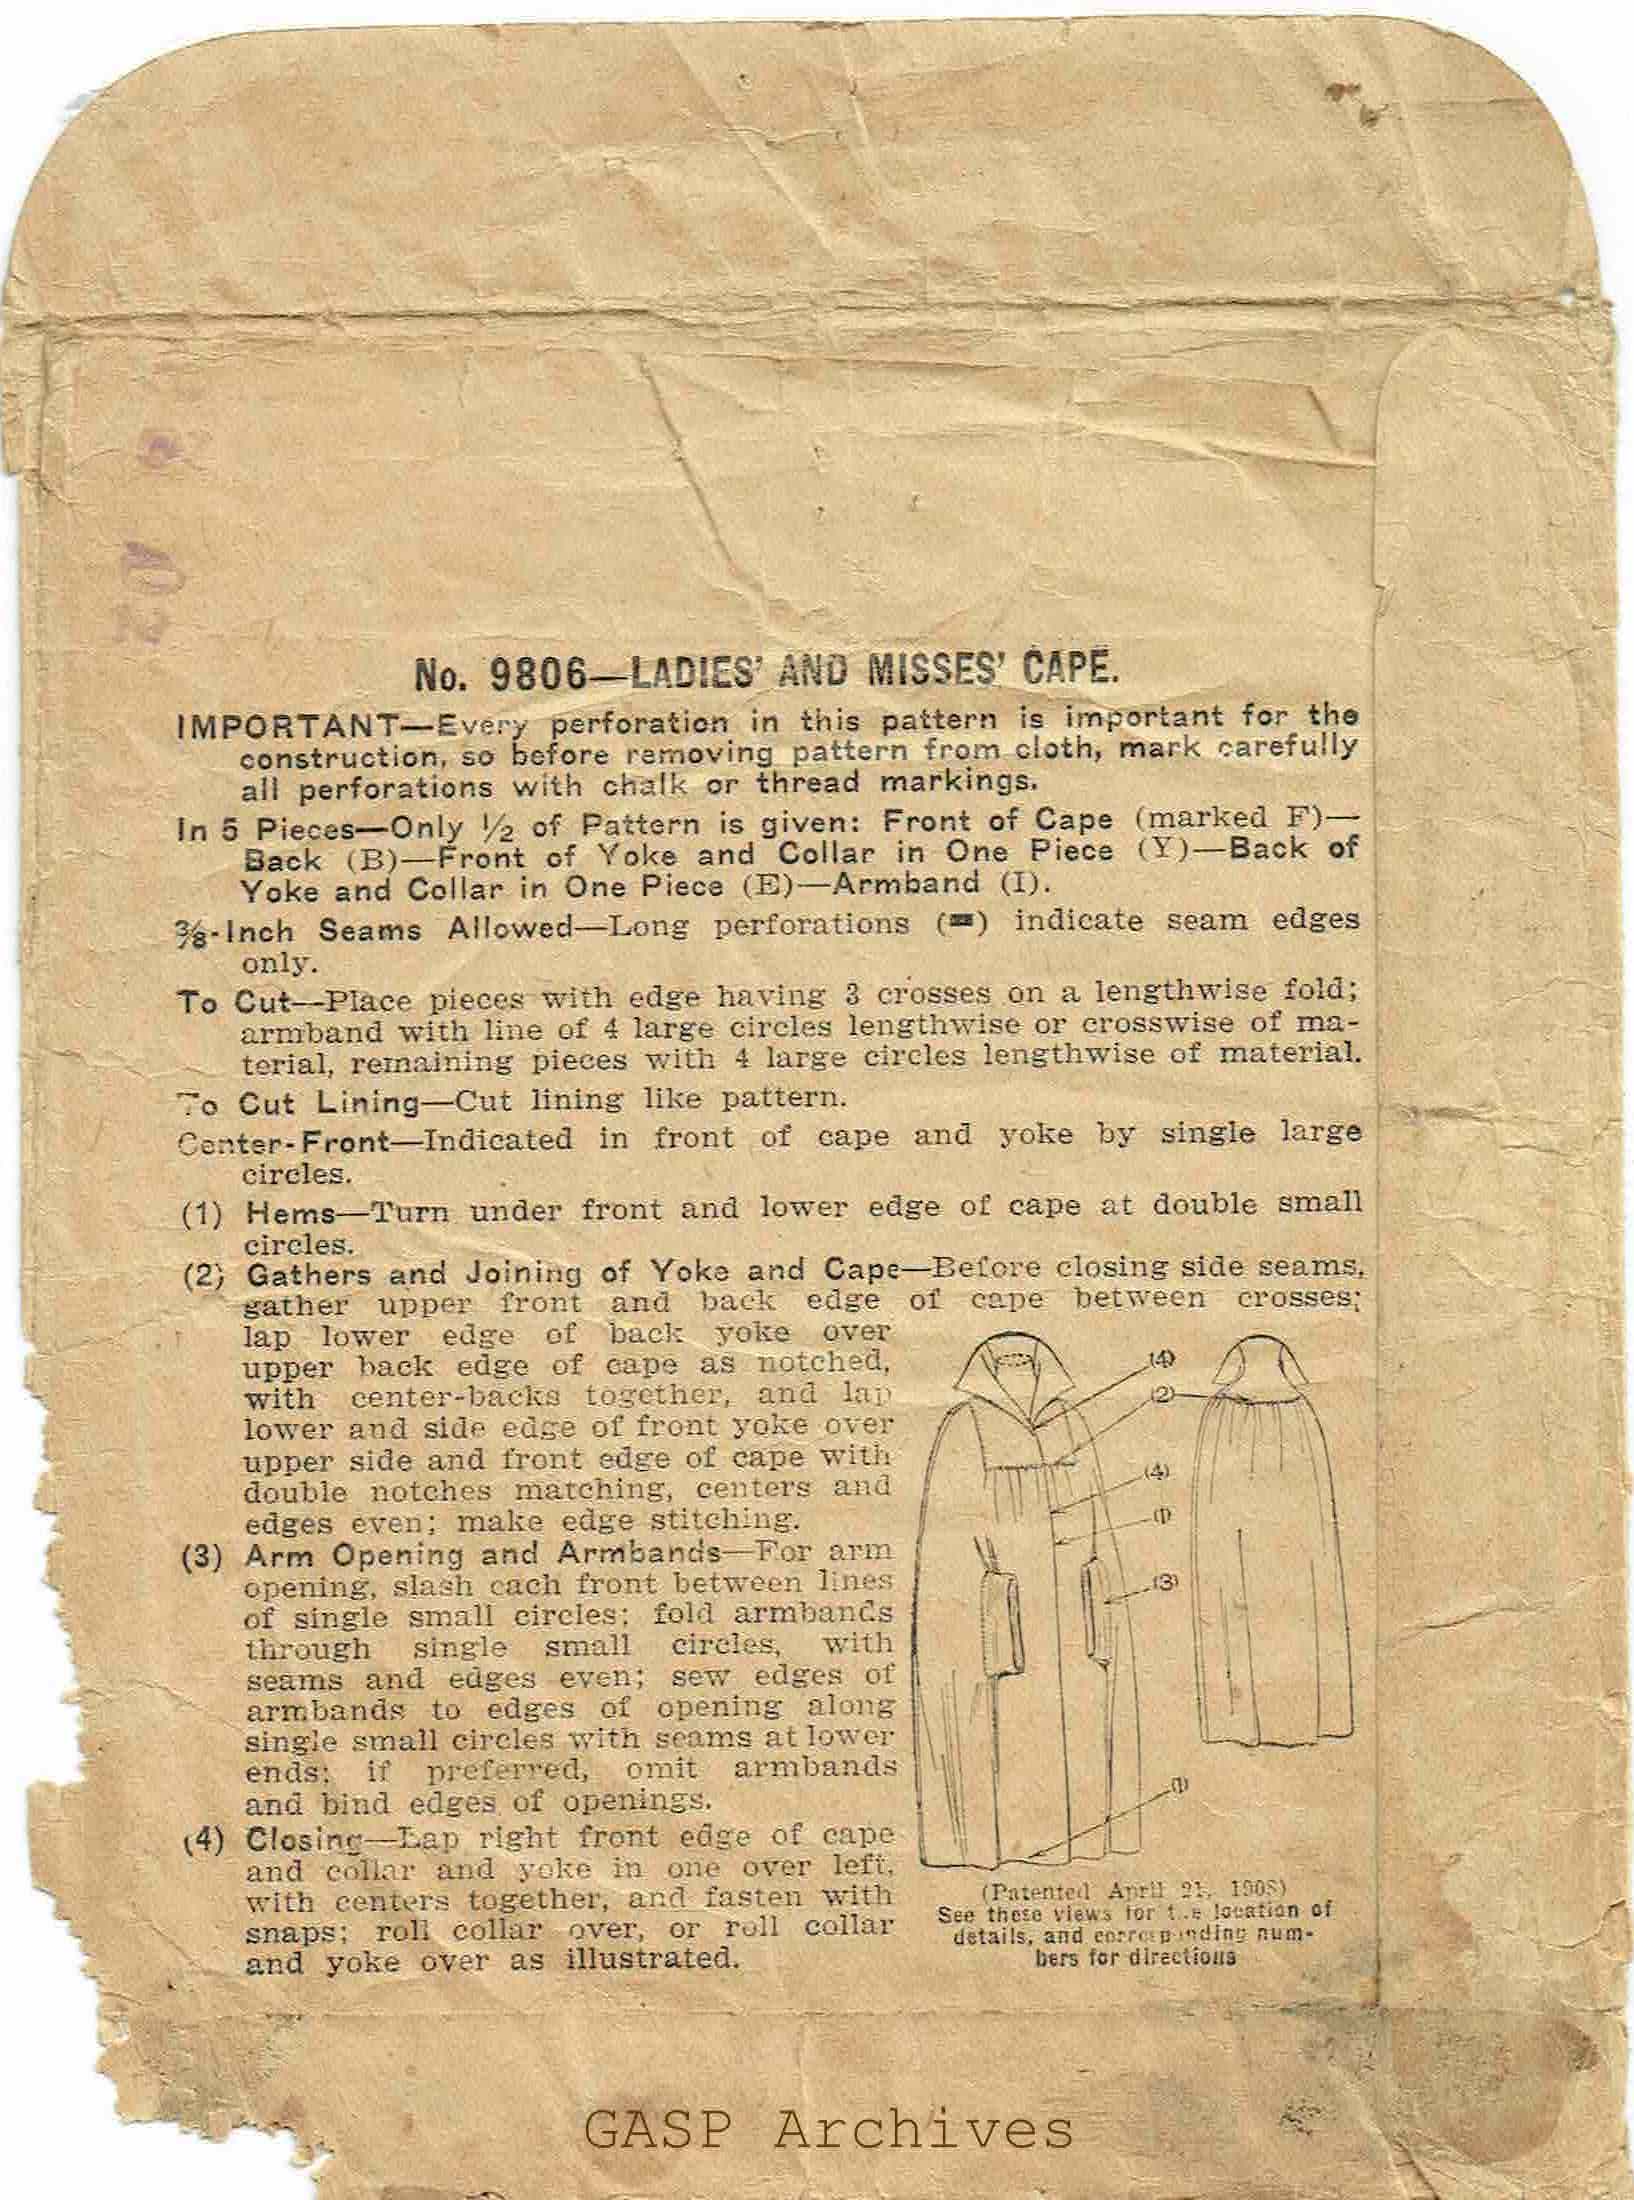 No. 9806—LADIES' AND MISSES' CAPE.
IMPORTANT—Every perforation in this pattern is important for the
construction, so before removing pattern from cloth, mark carefully
all perforations with chalk or thread markings.
In 5 Pieces—Only ½ of Pattern is given: Front of Cape (marked F)—
Back (B)—Front of Yoke and Collar in One Piece (Y)—Back of
Yoke and Collar in One Piece (E)—Armband (I).
⅜-Inch Seams Allowed—Long perforations (=) indicate seam edges
only.
To Cut—Place pieces with edge having 3 crosses on a lengthwise fold;
armband with line of 4 large circles lengthwise or crosswise of ma-
terial, remaining pieces with 4 large circles lengthwise of material.
To Cut Lining—Cut lining like pattern.
Center-Front—Indicated in front of cape and yoke by single large
circles.
(1) Hems—Turn under front and lower edge of cape at double small
circles.
(2) Gathers and Joining of Yoke and Cape—Before closing side seams,
gather upper front and back edge of cape between crosses;
lap lower edge of back yoke over
upper back edge of cape as notched,
with center-backs together, and lap
lower and side edge of front yoke over
upper side and front edge of cape with
double notches matching, centers and
edges even; make edge stitching.
(3) Arm Opening and Armbands—For arm
opening, slash each front between lines
of single small circles; fold armbands
through single small circles, with
seams and edges even; sew edges of
armbands to edges of opening along
single small circles with seams at lower
ends; if preferred, omit armbands
and bind edges of openings.
(4) Closing—Lap right front edge of cape
and collar and yoke in one over left,
with centers together, and fasten with
snaps; roll collar over, or roll collar
and yoke over as illustrated.
(4)
(2)
(4)
(1)
(3)
(1)
(Patented April 21, 1908)
See these views for the location of
details, and corresponding num-
bers for directions
GASP Archives